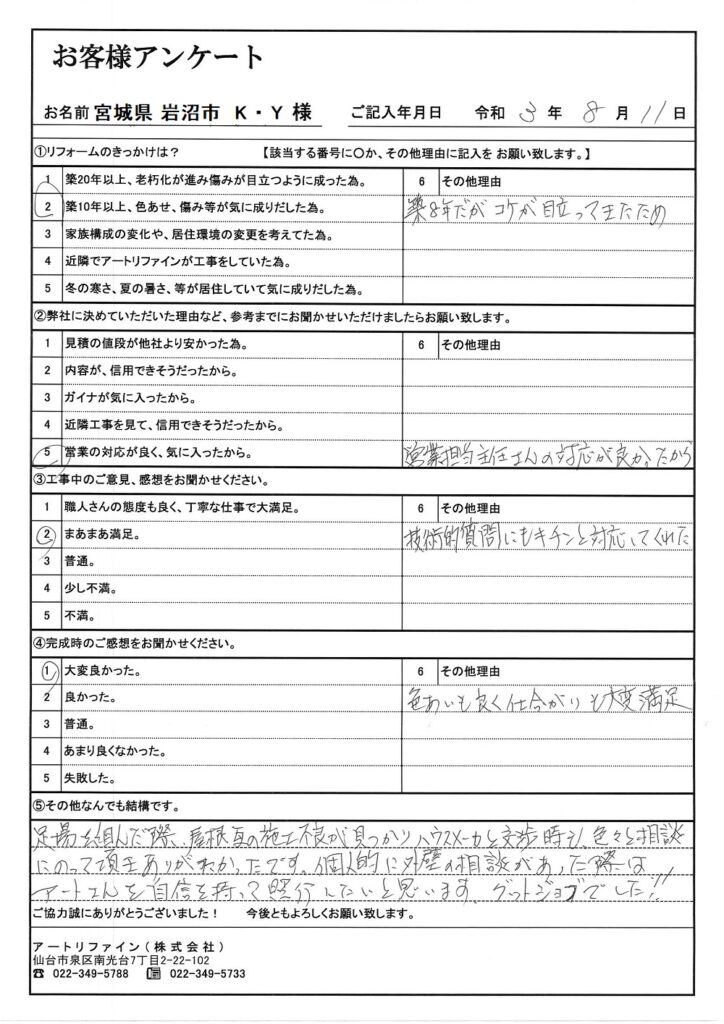 お客様アンケート
お名前 宮城県 岩沼市 K・Y 様 ご記入年月日 令和 3 年 8 月 11 日
①リフォームのきっかけは? 【該当する番号に○か、その他理由に記入を お願い致します。】
1 築20年以上、老朽化が進み傷みが目立つように成った為。 6 その他理由
2 築10年以上、色あせ、傷み等が気に成りだした為。 築8年だが コケが目立ってきたため
3 家族構成の変化や、居住環境の変更を考えてた為。
4 近隣でアートリファインが工事をしていた為。
5 冬の寒さ、夏の暑さ、等が居住していて気に成りだした為。
②弊社に決めていただいた理由など、参考までにお聞かせいただけましたらお願い致します。
1 見積の値段が他社より安かった為。 6 その他理由
2 内容が、信用できそうだったから。
3 ガイナが気に入ったから。
4 近隣工事を見て、信用できそうだったから。
5 営業の対応が良く、気に入ったから。 営業担当主任さんの対応が良かったから
③工事中のご意見、感想をお聞かせください。
1 職人さんの態度も良く、丁寧な仕事で大満足。 6 その他理由
2 まあまあ満足。 技術的質問にもキチンと対応してくれた
3 普通。
4 少し不満。
5 不満。
④完成時のご感想をお聞かせください。
1 大変良かった。 6 その他理由
2 良かった。 色あいも良く仕上がりも大変満足
3 普通。
4 あまり良くなかった。
5 失敗した。
⑤その他なんでも結構です。
足場を組んだ際、屋根裏の施工不良が見つかりハウスメーカと交渉時も、色々と相談
にのって頂きありがたかったです。個人的に外壁の相談があった際は
アートさんを自信を持って紹介したいと思います。グットジョブでした!!
ご協力誠にありがとうございました! 今後ともよろしくお願い致します。
アートリファイン(株式会社)
仙台市泉区南光台7丁目2-22-102
☎ 022-349-5788 022-349-5733